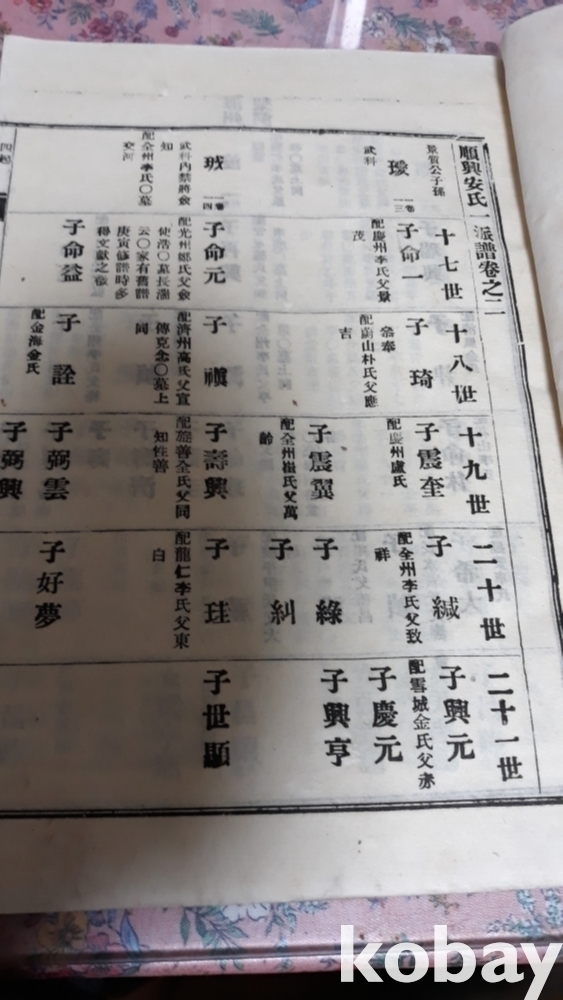 順興安氏一派譜卷之二
十七世
十八世
十九世
二十世
二十一世
景質公子孫
瑷 一卷 一三
武科
子命一
配慶州李氏父景
茂
子琦
參奉
配蔚山朴氏父應
吉
子震奎
配慶州盧氏
子震翼
配全州崔氏父萬
齡
子緘
配全州李氏父致
祥
子綠
子糾
子興元
配雪城金氏父赤
子慶元
子興亨
珬 一卷 一四
武科內禁將僉
知
配全州李氏〇墓
交河
子命元
配光州鄭氏父僉
使浩〇墓長湍
云〇家有舊譜
庚寅修譜時多
得文獻之徵
子命益
子禛
配濟州高氏父宣
傳克念〇墓上
同
子詮
配金海金氏
子壽興
配旌善全氏父同
知性善
子弼雲
子弼興
子珪
配龍仁李氏父東
白
子好夢
子世顯
kobay